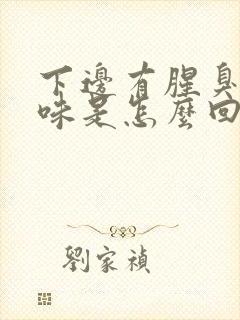 下邊有腥臭
味是怎麼回
劉家禎